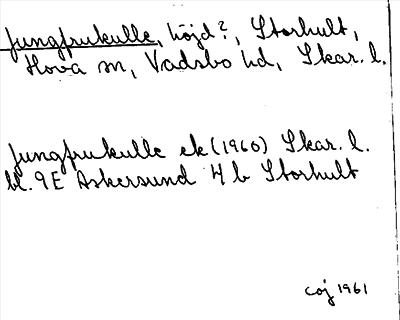 Jungfrukulle, höjd?, Storhult,
Hova sn, Vadsbo hd, Skar. l.
Jungfrukulle ek (1960) Skar. l.
bl. 9E Askersund 4 b Storhult
COJ 1961